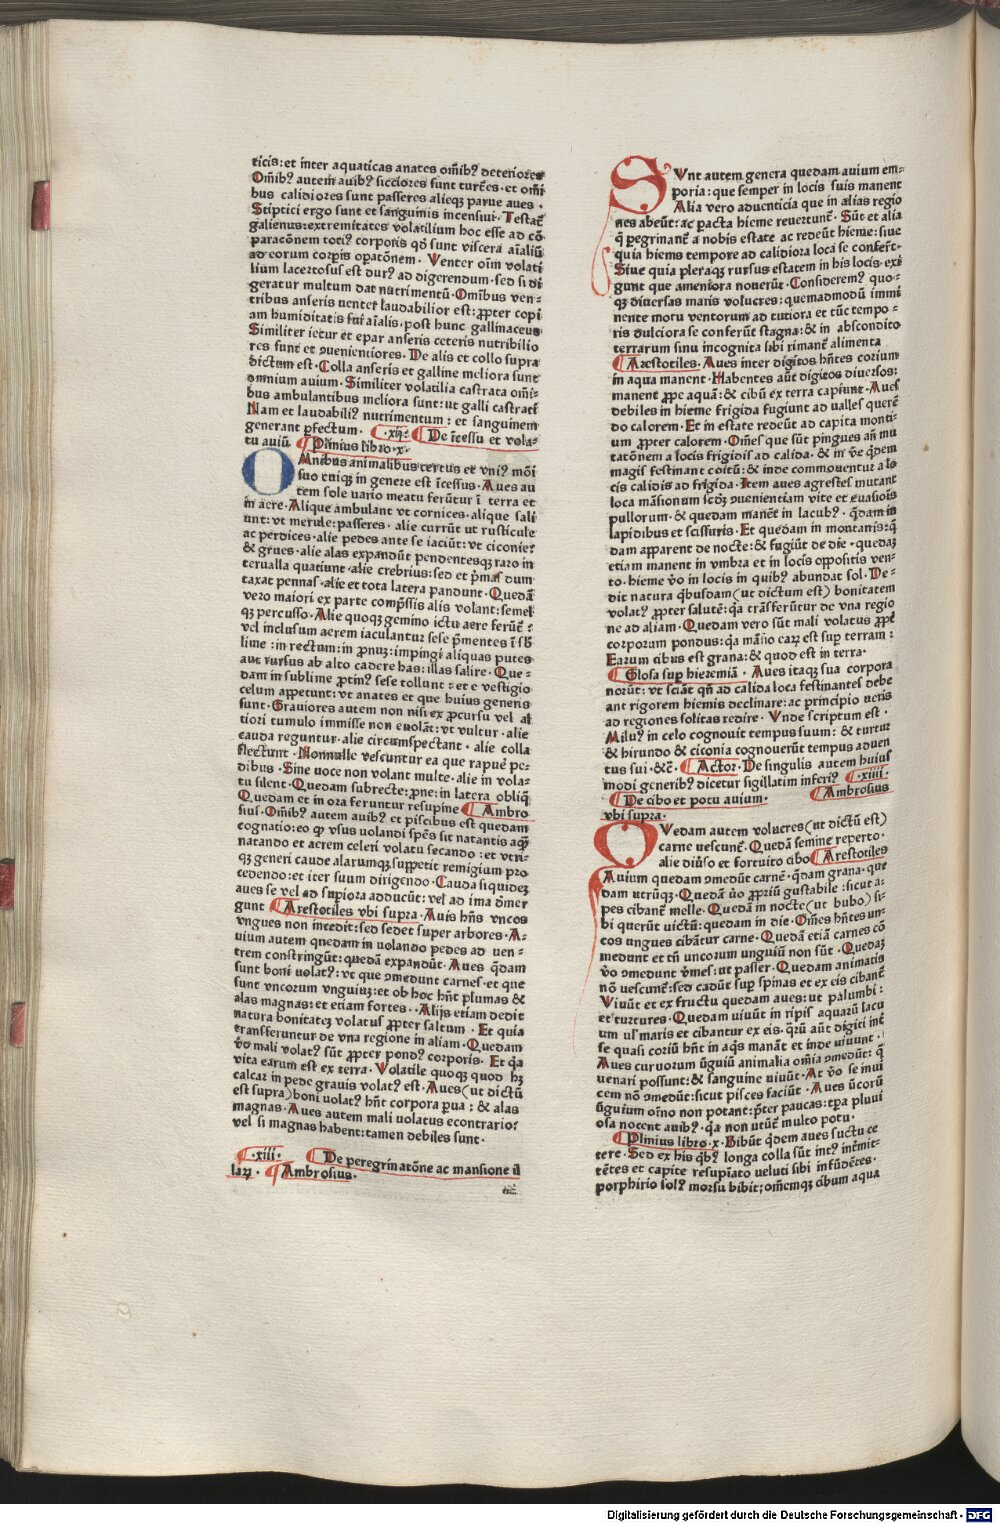 ticis: et inter aquaticas anates om̄ibꝰ deteriores
Om̄ibꝰ autem auibꝰ sicciores sunt turt̄es · et om̄i
bus calidiores sunt passeres alieqꝫ parue aues ·
Stiptici ergo sunt et sanguinis incensiui · Testat᷑
galienus: extremitates volatilium hoc esse ad cō
paracōnem totiꝰ corporis qȯ sunt viscera aīaliū
ad corum corp̄is oꝑatōnem · Venter oīm volati
lium lacertosus est durꝰ ad digerendum · sed si di
geratur multum dat nutrimentū · Omībus ven-
tribus anseris venter laudabilior est: ꝓpter copi
am humiditatis sui aīalis · post hunc gallinaceus
Similiter iecur et epar anseris ceteris nutribilio
res sunt et ꝯuenientiores · De alis et collo supra
dictum est · Colla anseris et galline meliora sunt
omnium auium · Similiter volatilia castrata om̄i-
bus ambulantibus meliora sunt: ut galli castrati
Nam et laudabiliꝰ nutrimentum: et sanguinem
generant ꝑfectum · ¶ · xij · ¶ De īcessu et vola-
tu auiū · ¶ Plinius libro · x ·
OMnibus animalibus certus et vniꝰ mōi
suo cuiqꝫ in genere est īcessus · Aues au
tem sole uario meatu ferūtur ī terra et
in aere · Alique ambulant vt cornices · alique sali
unt: vt merule: passeres · alie currūt ut rusticule
ac perdices · alie pedes ante se iaciūt: vt ciconie:
& grues · alie alas expandūt pendentesqꝫ raro in
terualla quatiunt · alie crebrius: sed et p̄mas dum
taxat pennas · alie et tota latera pandunt · Quedā
vero maiori ex parte comp̄ssis alis volant: semel
qꝫ percusso · Alie quoqꝫ gemino ictu aere ferūt᷑:
vel inclusum aerem iaculantur sese p̄mentes ī sb̄
lime: in rectum: in ꝓnuꝫ: impingi aliquas putes
aut rursus ab alto cadere has: illas salire · Que-
dam in sublime ꝓtinꝰ sese tollunt: et e vestigio
celum appetunt: vt anates et que huius generis
sunt · Grauiores autem non nisi ex ꝓcursu vel al
tiori tumulo immisse non euolāt: vt vultur · alie
cauda reguntur · alie circumspectant · alie colla
flectunt · Nonnulle vescuntur ea que rapuē pe-
dibus · Sine uoce non volant multe · alie in vola-
tu silent · Quedam subrecte: ꝓne: in latera obliq̄
Quedam et in ora feruntur resupine ¶ Ambro
sius · Om̄ibꝰ autem auibꝰ et piscibus est quedam
cognatio: eo ꝙ vsus uolandi spēs sit natantis aqꝫ
natando et aerem celeri volatu secando: et vtri-
qꝫ generi caude alarumqꝫ suppetit remigium pro
cedendo: et iter suum dirigendo · Cauda siquideꝫ
aues se vel ad superiora adducūt: vel ad ima d̄mer
gunt ¶ Arestotiles vbi supra · Auis hn̄s vncos
vngues non incedit: sed sedet super arbores · A-
uium autem quedam in uolando pedes ad uen-
trem constringūt: quedā expandūt · Aues q̄dam
sunt boni uolatꝰ: vt que ꝯmedunt carnes · et que
sunt vncorum vnguiuꝫ: et ob hoc hn̄t plumas &
alas magnas: et etiam fortes · Alijs etiam dedit
natura bonitateꝫ volatus ꝓpter saltum · Et quia
transferuntur de vna regione in aliam · Quedam
v̇o mali volatꝰ sūt ꝓpter pondꝰ corporis · Et q̄a
vita earum est ex terra · Volatile quoqꝫ quod hꝫ
calcar in pede grauis volatꝰ est · Aues (ut dictū
est supra) boni uolatꝰ hn̄t corpora ꝑua: & alas
magnas · Aues autem mali uolatus econtrario:
vel si magnas habent: tamen debiles sunt ·
¶ · xiii · ¶ De peregrinatōne ac mansione il
laꝝ · ¶ Ambrosius ·
SVnt autem genera quedam auium em-
poria: que semper in locis suis manent
Alia vero aduenticia que in alias regio
nes abeūt: ac pacta hieme reuertunt᷑ · Sūt et alia
q̄ peregrinant᷑ a nobis estate ac redeūt hieme: siue
quia hiems tempore ad calidiora loca se conferūt ·
Siue quia pleraqꝫ rursus estatem in his locis exi
gunt que ameniora nouerūt · Consideremꝰ quo-
qꝫ diuersas maris volucres: quemadmodū immi
nente motu ventorum ad tutiora et tūc tempo-
ris dulciora se conferūt stagna: & in abscondito
terrarum sinu incognita sibi rimant᷑ alimenta
¶ Arestotiles · Aues inter digitos hn̄tes corium
in aqua manent · Habentes aūt digitos diuersos:
manent ꝓpe aquā: & cibū ex terra capiunt · Aues
debiles in hieme frigida fugiunt ad ualles querē
do calorem · Et in estate redeūt ad capita monti-
um ꝓpter calorem · Om̄es que sūt pingues an̄ mu
tatōnem a locis frigidis ad calida · & in v̄e q̄dem
magis festinant coitū: & inde commouentur a lo
cis calidis ad frigida · Item aues agrestes mutant
loca māsionum scd̄ꝫ ꝯuenientiam vite et euasiōis
pullorum · & quedam manēt in lacubꝰ · q̄dam in
lapidibus et scissuris · Et quedam in montanis: q̄
dam apparent de nocte: & fugiūt de die · quedaꝫ
etiam manent in vmbra et in locis oppositis ven-
to · hieme v̇o in locis in quibꝰ abundat sol · De-
dit natura q̄busdam (ut dictum est) bonitatem
volatꝰ ꝓpter salutē: q̄a trāsferūtur de vna regio
ne ad aliam · Quedam vero sūt mali volatus ꝓpt᷑
corporum pondus: q̄a māsio eaꝝ est suꝑ terram:
Earum cibus est grana: & quod est in terra ·
¶ Glosa suꝑ hieremiā · Aues itaqꝫ sua corpora
norūt: vt sciāt qn̄ ad calida loca festinantes debe
ant rigorem hiemis declinare: ac principio ueris
ad regiones solitas redire · Vnde scriptum est ·
Miluꝰ in celo cognouit tempus suum: & turtur
& hirundo & ciconia cognouerūt tempus aduen
tus sui · &c̄ · ¶ Actor · De singulis autem huius
modi generibꝰ dicetur sigillatim inferiꝰ ¶ · xiiii ·
¶ De cibo et potu auium · ¶ Ambrosius
vbi supra ·
QVedam autem volucres (ut dictū est)
carne uescunt᷑ · Quedā semine reperto ·
alie diu̇so et fortuito cibo ¶ Arestotiles
Auium quedam ꝯmedūt carnē · q̄dam grana · que
dam utrūqꝫ · Quedā u̇o ꝓpriū gustabile: sicut a-
pes cibant᷑ melle · Quedā in nocte (ut bubo) si-
bi querūt victū: quedam in die · Om̄es hn̄tes un-
cos ungues cibātur carne · Quedā etiā carnes cō
medunt et tn̄ uncorum unguiū non sūt · Quedaꝫ
v̇o ꝯmedunt v̄mes: ut passer · Quedam animatis
nō uescunt᷑: sed cadūt suꝑ spinas et ex eis cibant᷑
Viuūt et ex fructu quedam aues: ut palumbi:
et turtures · Quedam uiuūt in ripis aquarū lacu
um uel maris et cibantur ex eis · q̄rū aūt digiti int᷑
se quasi coriū hn̄t in aq̄s manāt et inde uiuunt ·
Aues curuorum ūguiū animalia om̄ia ꝯmedūt: q̄
venari possunt: & sanguine uiuūt · At v̇o se inui
cem nō ꝯmedūt: sicut pisces faciūt · Aues ūcorū
ūguium oīno non potant: p̄ter paucas: tꝑa pluui
osa nocent auibꝰ · q̄a non utūt᷑ multo potu ·
¶ Plinius libro · x · Bibūt q̄dem aues suctu ce
tere · Sed ex his q̄bꝰ longa colla sūt intꝰ int᷑mit-
tētes et capite resupīato veluti sibi infūdētes ·
porphirio solꝰ morsu bibit: om̄emqꝫ cibum aqua
Digitalisierung gefördert durch die Deutsche Forschungsgemeinschaft - DFG